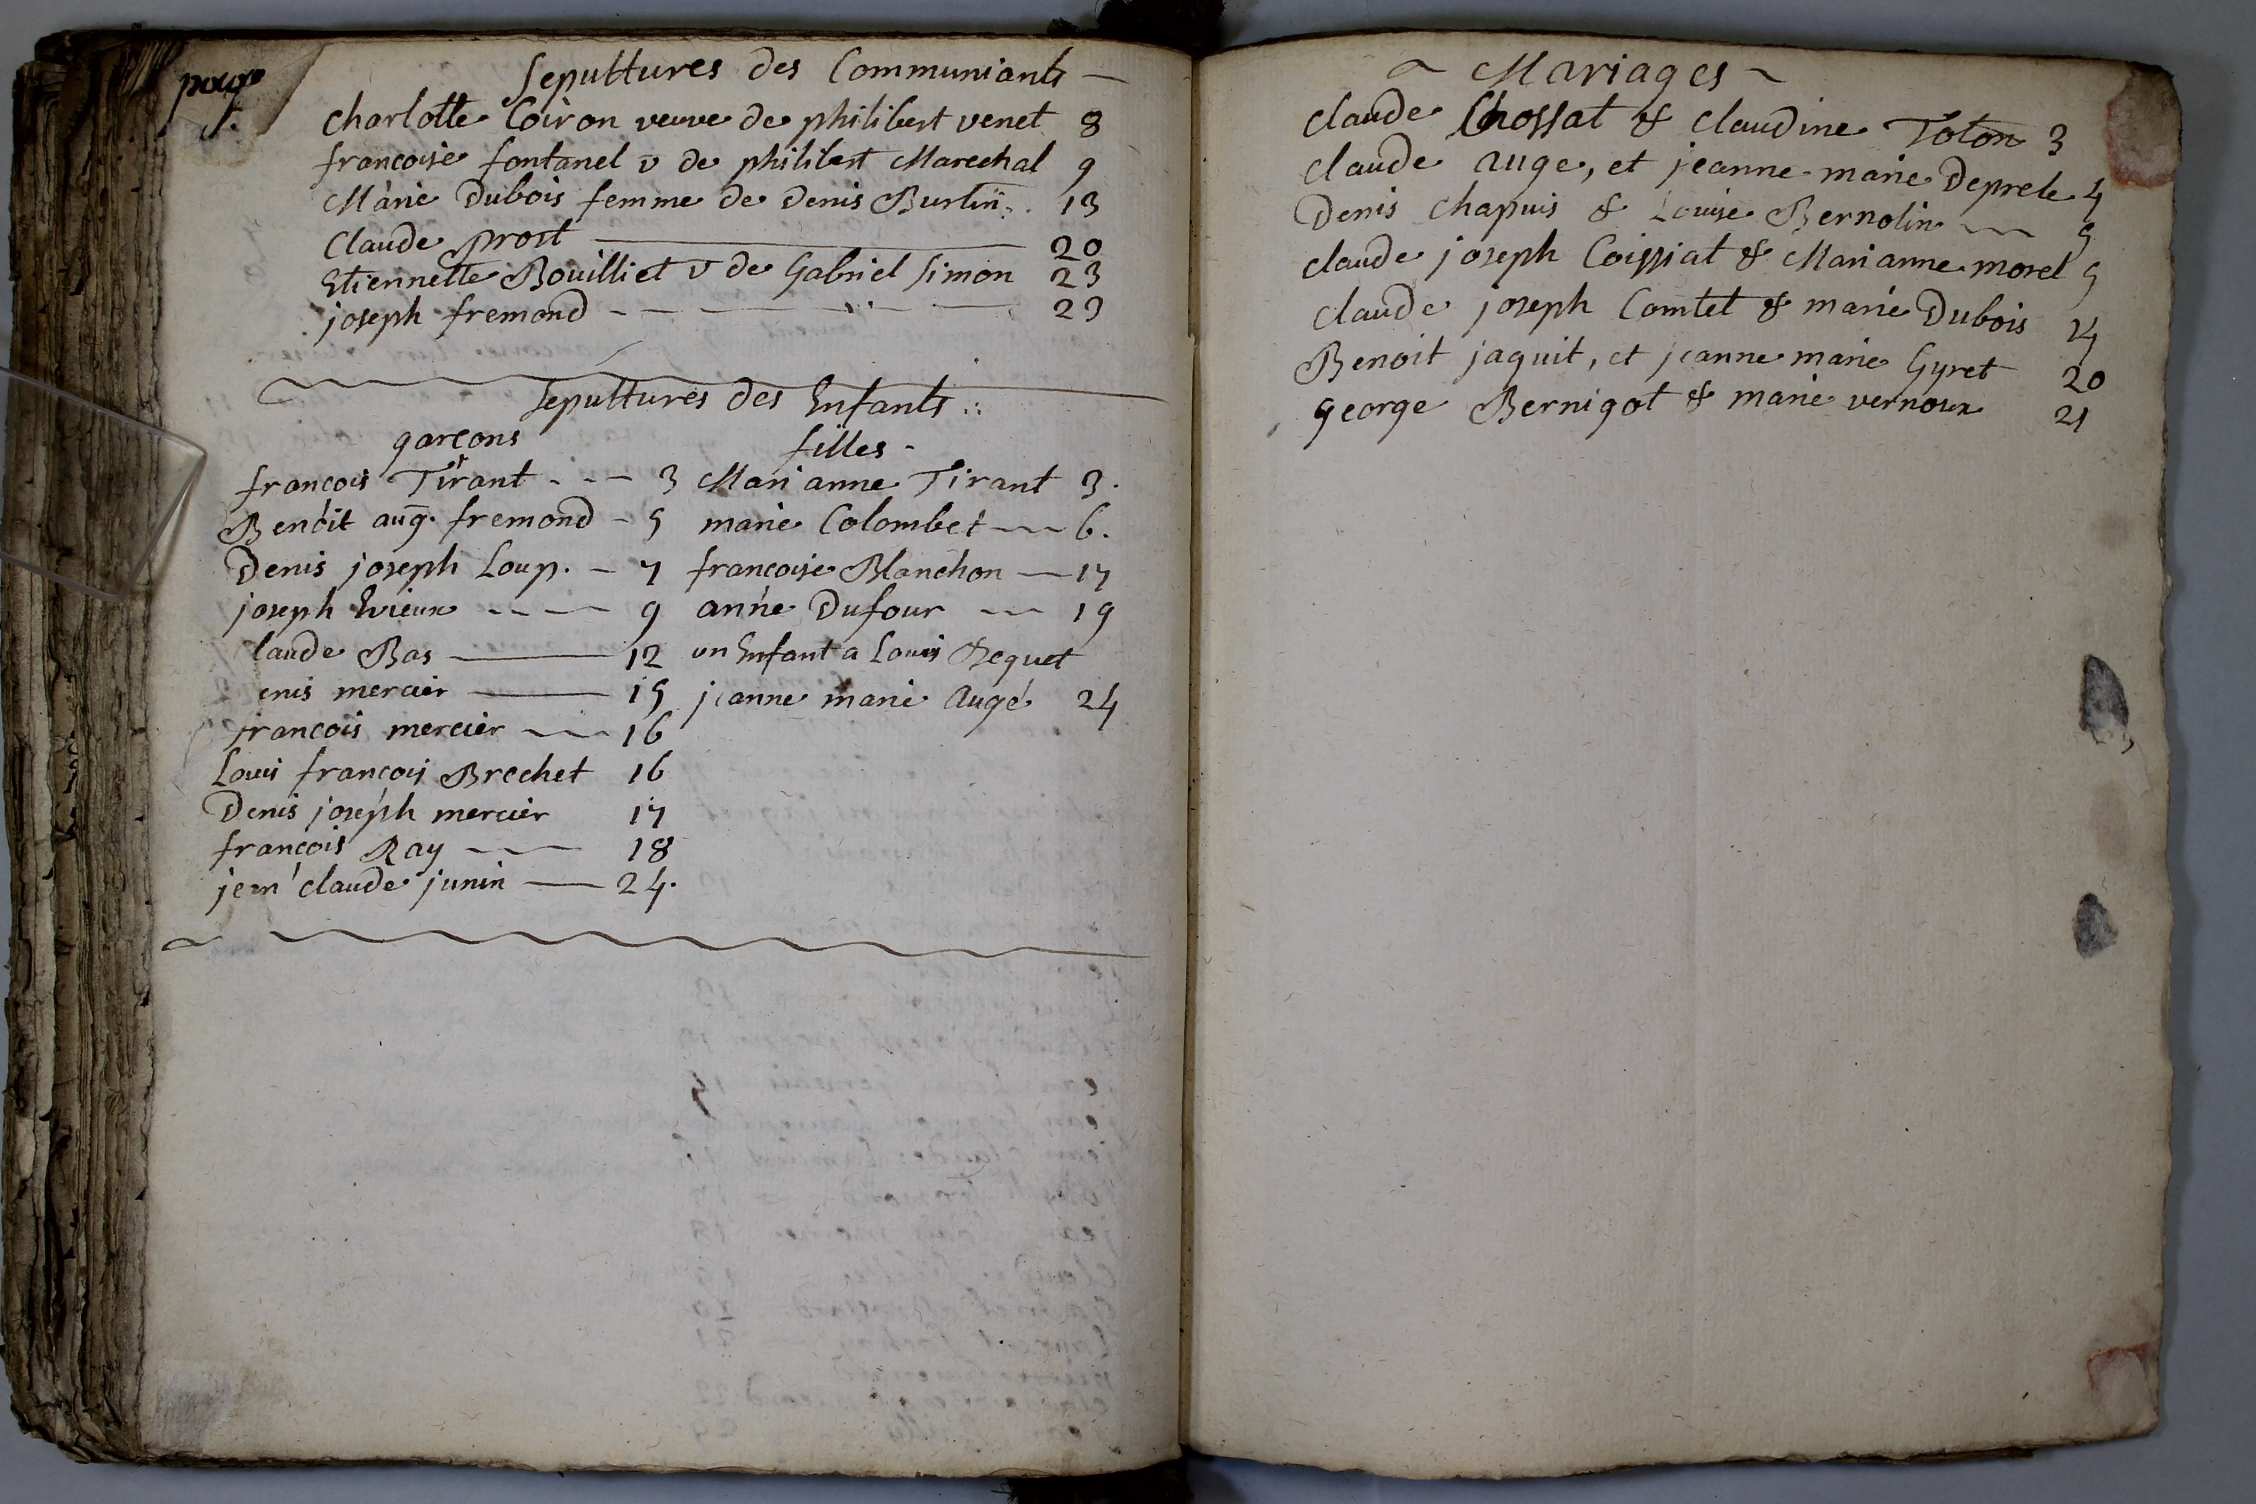 Sepultures des Communiants
charlotte Coiron veuve de philibert venet 8
francoise fontanel v de philibert Marechal 9
Marie Dubois femme de Denis Burtin 13
Claude prost 20
Etiennette Bouilliet v de Gabriel Simon 23
joseph fremond 23
Sepultures des Enfants
garcons
francois Tirant 3
Benoit aug. fremond 5
Denis joseph Loup. 7
joseph Evieux 9
laude Bas 12
enis mercier 15
francois mercier 16
Louis francois Brochet 16
Denis joseph mercier 17
francois Ray 18
jean claude junin 24.
filles
Marianne Tirant 3.
marie Colombet 6.
francoise Blanchon 17
anne Dufour 19
un Enfant a Louis Requet
jeanne marie Augé 24
Mariages
claude Chossat & claudine Toton 3
claude auge, et jeanne marie Deprele 4
Denis chapuis & Louise Bernolin 5
claude joseph Coissiat & Marianne morel 5
claude joseph Comtet & marie Dubois 14
Benoit jaquit, et jeanne marie Gyret 20
george Bernigot & marie vernoux 21